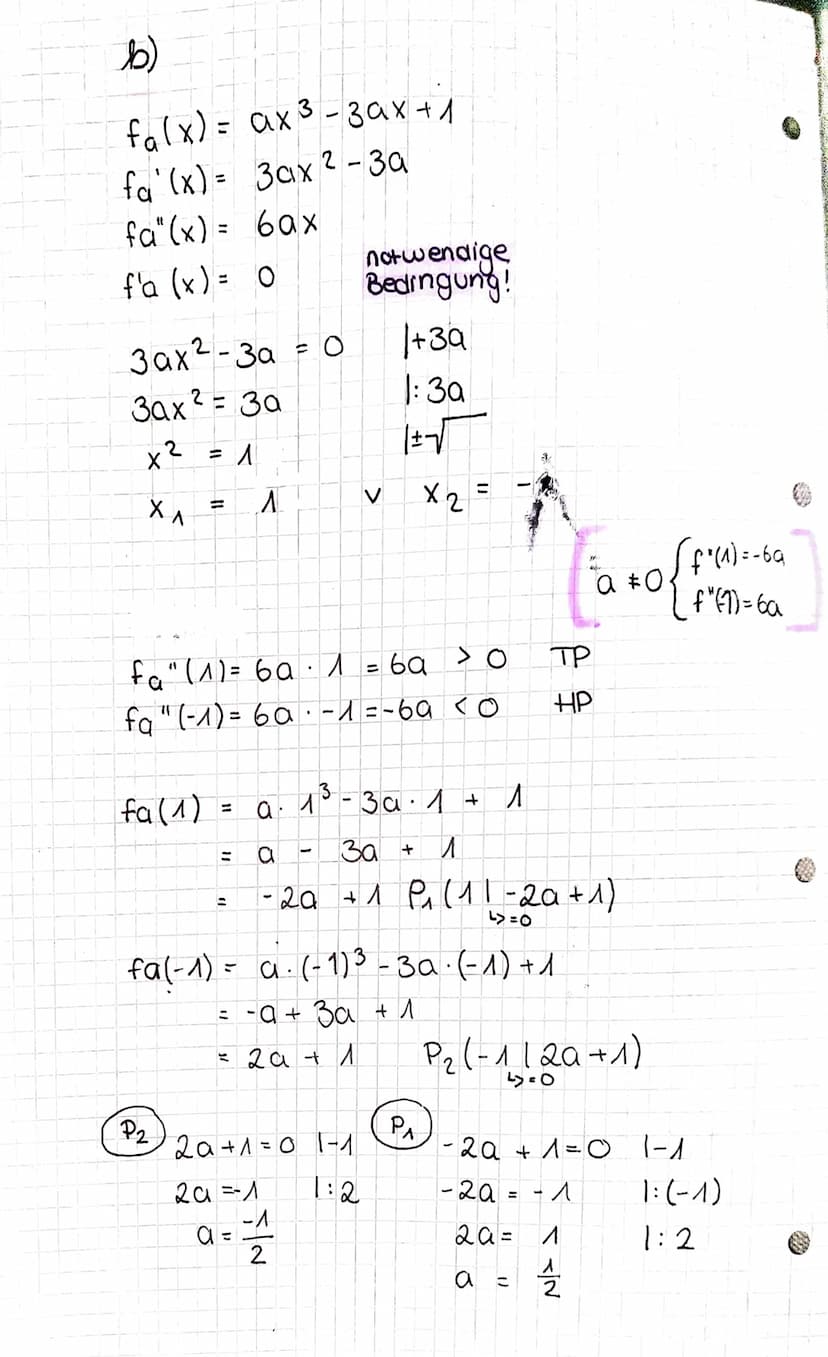 b)
fa(x) = ax³ - 3ax + 1
fa'(x) = 3ax² - 3a
fa"(x) = 6ax
f'a (x) = 0 notwendige Bedingung!
3ax² - 3a = 0 |+3a
3ax² = 3a |: 3a
x² = 1 |±√
x₁ = 1 v x₂ = -1
[a ≠ 0 { f"(1) = -6a
f"(-1) = 6a ]
fa"(1) = 6a · 1 = 6a > 0 TP
fa"(-1) = 6a · -1 = -6a < 0 HP
fa(1) = a · 1³ - 3a · 1 + 1
= a - 3a + 1
= -2a + 1 P₁(1 | -2a + 1)
↳ = 0
fa(-1) = a · (-1)³ - 3a · (-1) + 1
= -a + 3a + 1
= 2a + 1 P₂(-1 | 2a + 1)
↳ = 0
P₂ 2a + 1 = 0 |-1 P₁ -2a + 1 = 0 |-1
2a = -1 |: 2 -2a = -1 |: (-1)
a = -1/2 2a = 1 |: 2
a = 1/2